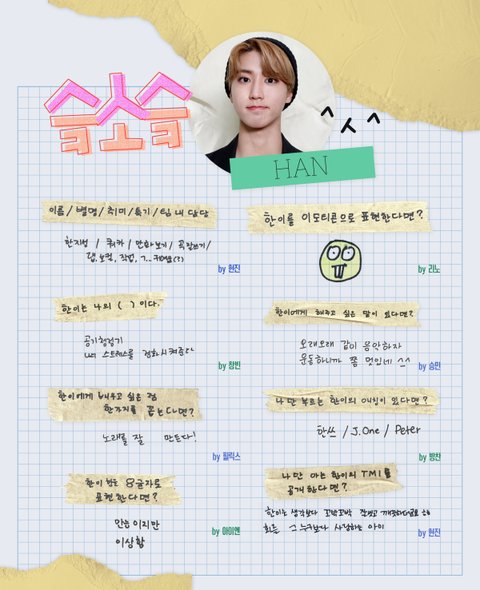 슼소슼
HAN
이름/별명/취미/특기/팀 내 담당
한지성 / 쿼카 / 만화보기 /
랩, 보컬, 작업,
by 현진
한이를 이모티콘으로 표현한다면?
by 리노
한이는 나의 ( ) 이다.
공기청정기
나의 스트레스를 정화시켜줌
by 창빈
한이에게 해주고 싶은 말이 있다면?
오래오래 같이 음악하자
운동하니까 쫌 멋있네 ^^
by 승민
한이에게 배우고 싶은 점
한가지를 꼽는다면?
노래를 잘 만든다!
by 필릭스
나만 부르는 한이의 애칭이 있다면?
한쓰 / J.One / Peter
by 방찬
한이를 8글자로
표현한다면?
만능이지만
이상함
by 아이엔
나만 아는 한이의 TMI를
공개한다면?
한이는 생각보다 꼬박꼬박 잘씻고 깨끗하다
그 누구보다 사랑하는 아이
by 현진